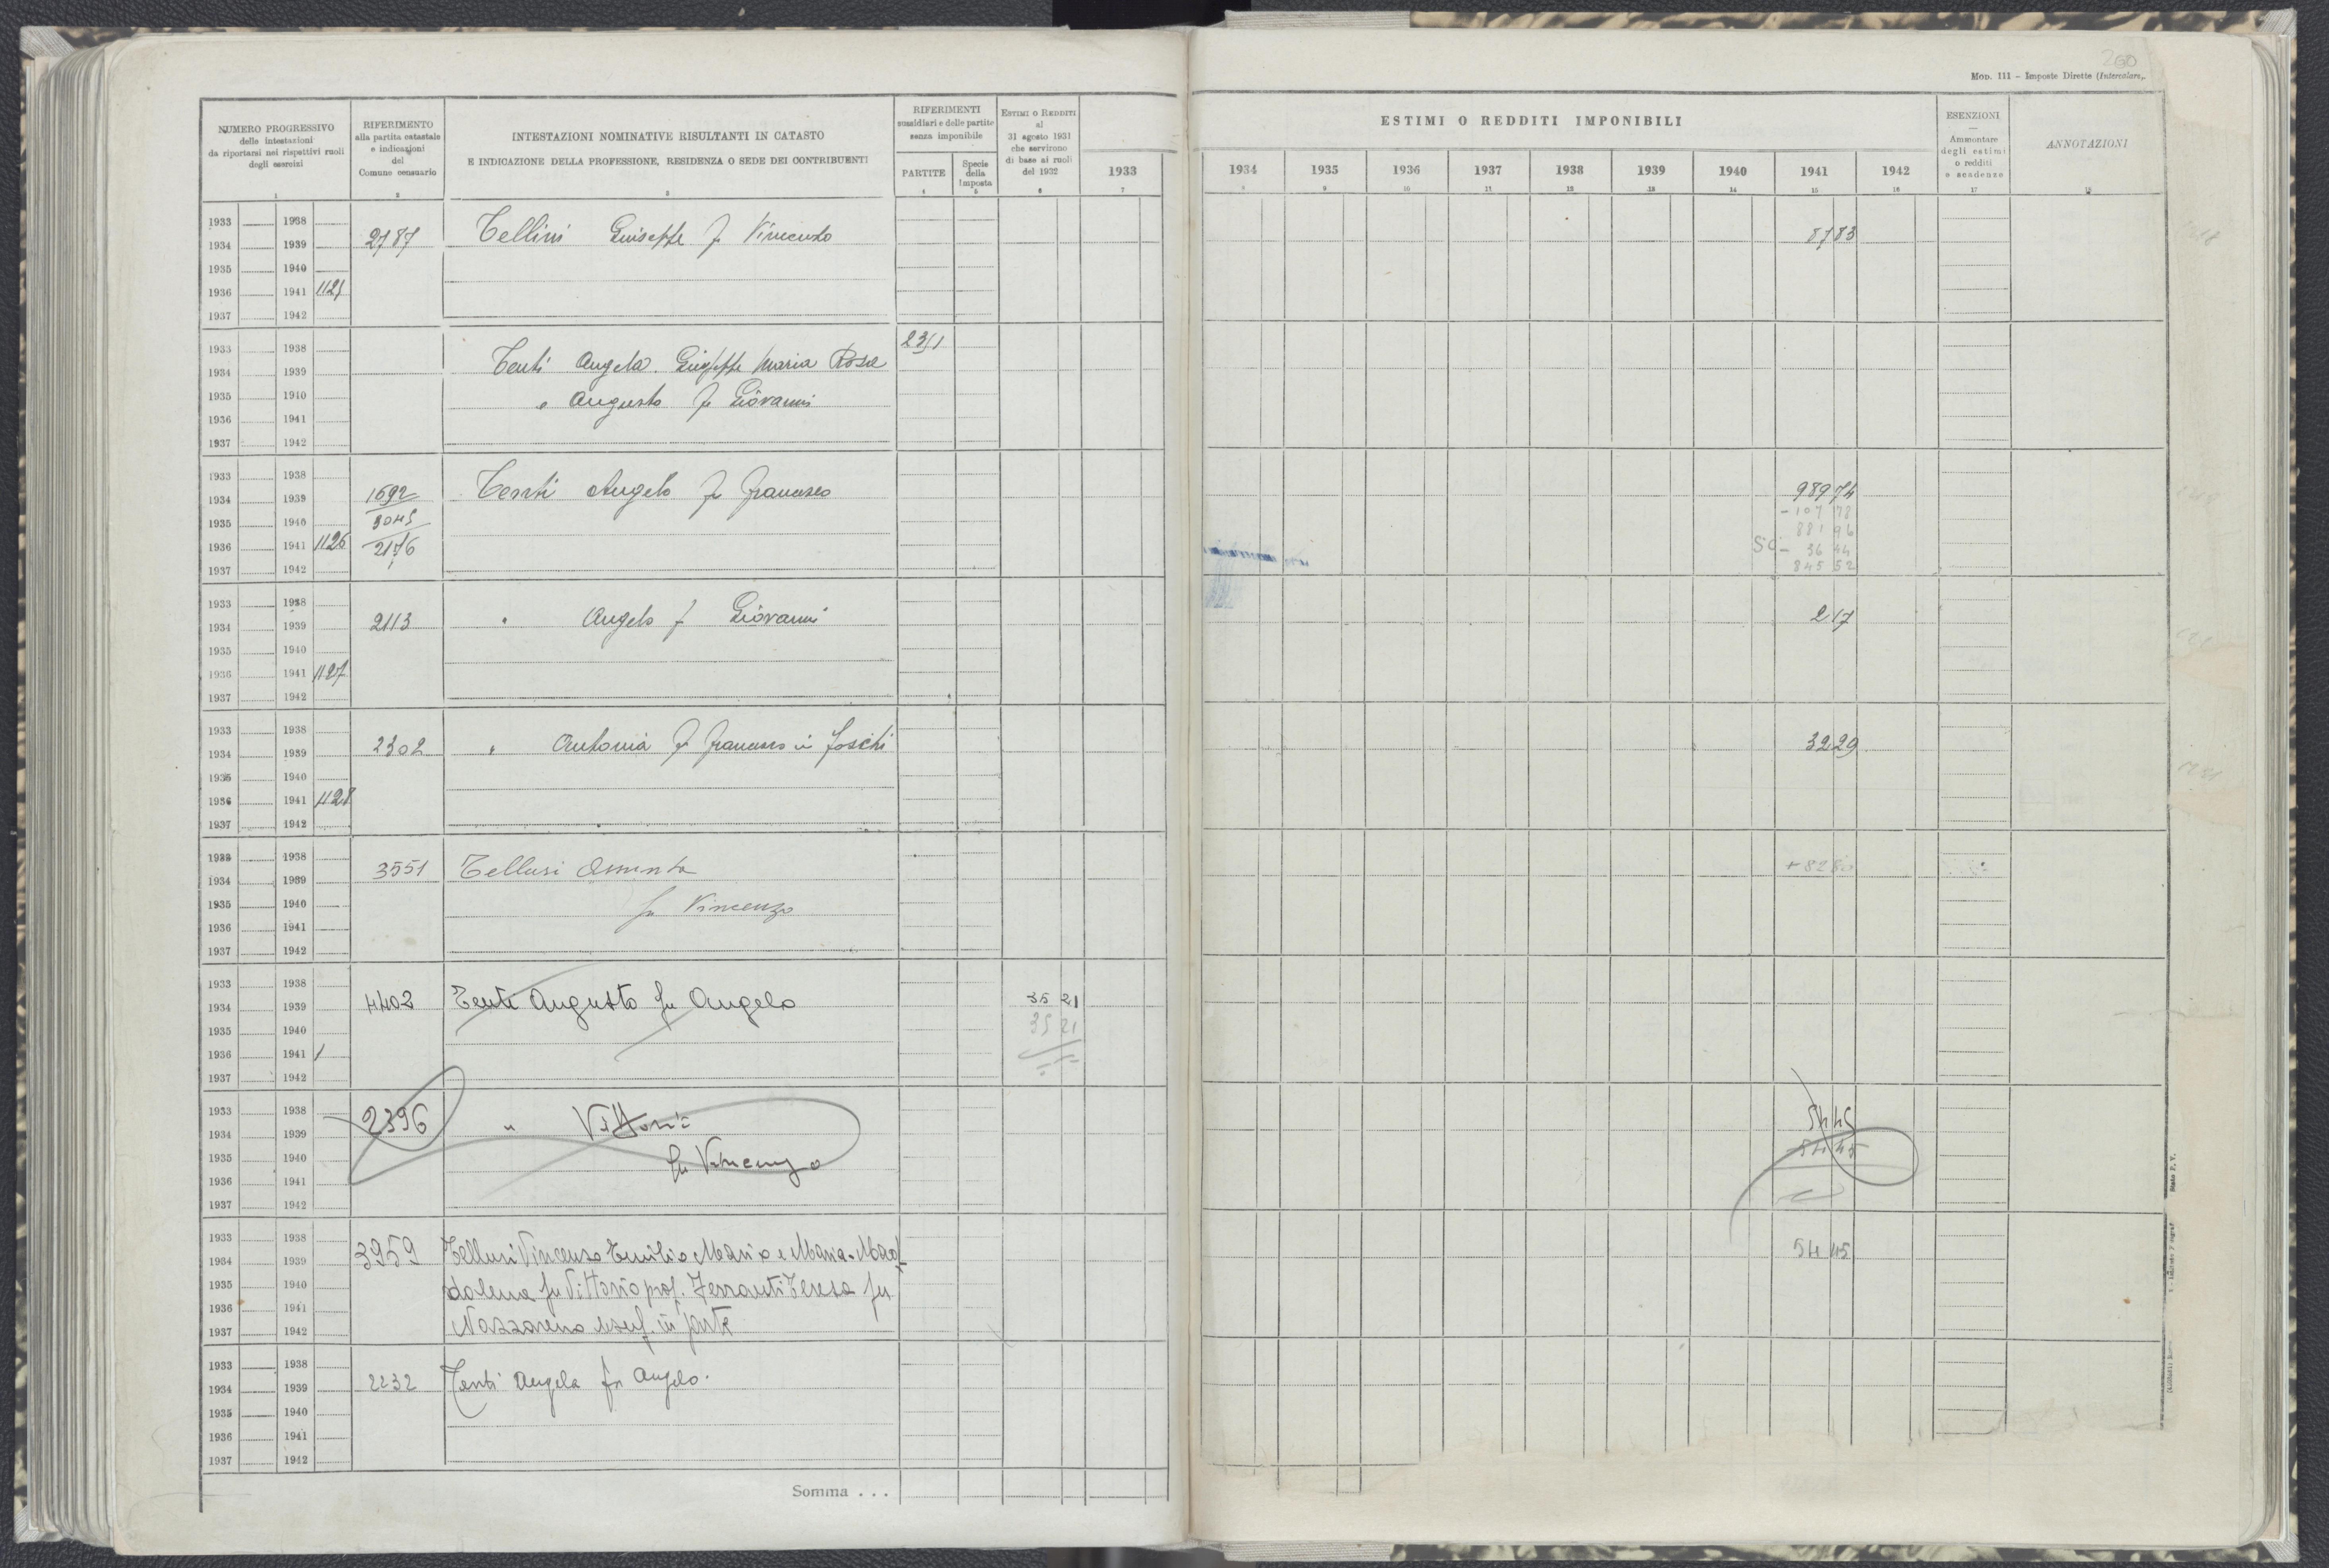 260
MOD. 111 - Imposte Dirette (Intercalare)
NUMERO PROGRESSIVO
delle intestazioni
da riportarsi nei rispettivi ruoli
degli esercizi
1
RIFERIMENTO
alla partita catastale
e indicazioni
del
Comune censuario
2
INTESTAZIONI NOMINATIVE RISULTANTI IN CATASTO
E INDICAZIONE DELLA PROFESSIONE, RESIDENZA O SEDE DEI CONTRIBUENTI
3
RIFERIMENTI
sussidiari e delle partite
senza imponibile
PARTITE
4
Specie
della
Imposta
5
ESTIMI O REDDITI
al
31 agosto 1931
che servirono
di base ai ruoli
del 1932
6
1933
7
ESTIMI O REDDITI IMPONIBILI
1934 1935 1936 1937 1938 1939 1940 1941 1942
8 9 10 11 12 13 14 15 16
ESENZIONI
Ammontare
degli estimi
o redditi
o scadenze
17
ANNOTAZIONI
18
1933 1938
1934 1939 2787 Tellini Giuseppe fu Vincenzo 87 83
1935 1940
1936 1941 1125
1937 1942
1933 1938 2351
1934 1939 Tenti Angela Giuseppe Maria Rosa
1935 1940 " Augusto fu Giovanni
1936 1941
1937 1942
1933 1938
1934 1939 1692 Tenti Angelo fu Francesco 989 74
1935 1940 3045 - 107 78
881 96
1936 1941 1126 2176 - 36 44
1937 1942 845 52
1933 1938
1934 1939 2113 " Angelo fu Giovanni 2 17
1935 1940
1936 1941 1127
1937 1942
1933 1938
1934 1939 2302 " Antonia fu Francesco in Foschi 32 29
1935 1940
1936 1941 1128
1937 1942
1933 1938
1934 1939 3551 Tellusi Assunta + 82 80
1935 1940 fu Vincenzo
1936 1941
1937 1942
1933 1938
1934 1939 4402 Tenti Augusto fu Angelo 35 21
1935 1940 35 21
1936 1941 1
1937 1942
1933 1938
1934 1939 2396 " Vittorio 54 45
1935 1940 fu Vincenzo 54 45
1936 1941
1937 1942
1933 1938
1934 1939 3959 Tellusi Vincenzo Emilio Mario e Maria-Mad
1935 1940 dalena fu Vittorio prof. Ferranti Teresa fu 54 45
1936 1941
1937 1942 Nazzareno usuf. in parte
1933 1938
1934 1939 2232 Tenti Angela fu Angelo.
1935 1940
1936 1941
1937 1942
Somma . . .